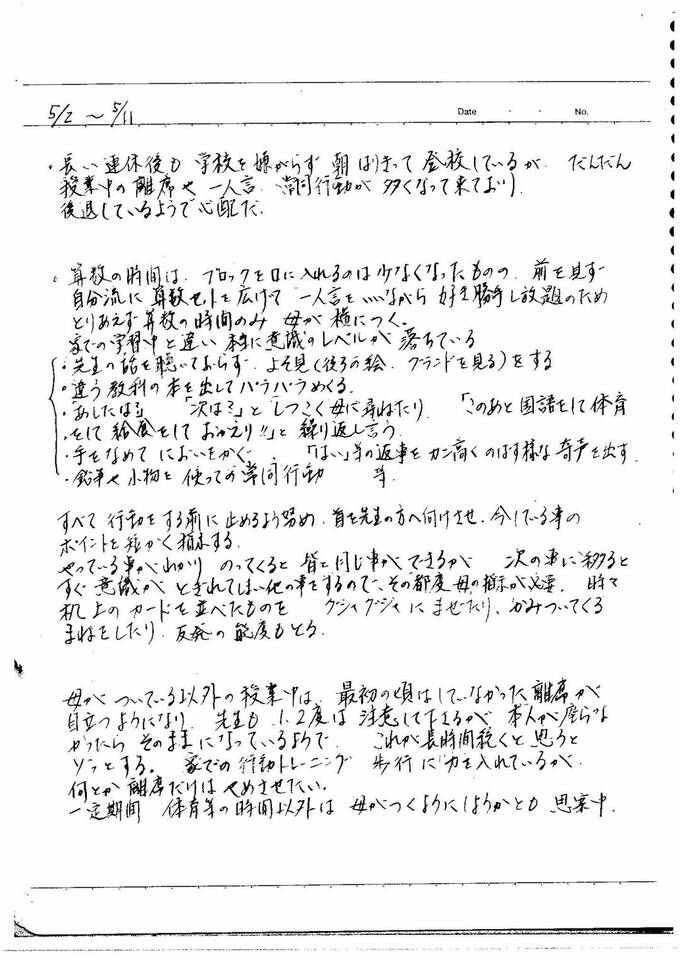 5/2 ～ 5/11
Date ・ ・ No.
・長い連休後も 学校を嫌がらず 朝 はりきって 登校しているが、だんだん
授業中の離席や 一人言、常同行動が 多くなって来ており、
後退しているようで心配だ.
。算数の時間は、ブロックを口に入れるのは少なくなったものの、前を見ず
自分流に 算数セットを広げて 一人言をいいながら 好き勝手し放題のため
とりあえず算数の時間のみ 母が 横につく。
家での学習中と違い 本当に意識のレベルが 落ちている
・先生の話を聴いておらず、よそ見(後ろの絵、グランドを見る)をする
・違う教科の本を出してパラパラめくる.
・「あしたは?」 「次は?」と しつこく母に尋ねたり、「このあと国語をして体育
・をして 給食をして おかえり!!」と 繰り返し言う.
・手をなめて においをかぐ、 「はい」等の返事を カン高く のばす様な 奇声を出す.
・鉛筆や小物を 使っての常同行動 等
すべて 行動をする前に止めるよう努め、首を先生の方へ向けさせ、今している事の
ポイントを短かく指示する.
やっている事がわかり のってくると 皆と同じ事ができるが 次の事に移ると
すぐ意識が とぎれてしまい他の事をするので、その都度 母の指示が必要. 時々
机上のカードを並べたものを グシャグシャに まぜたり、かみついてくる
まねをしたり、反発の態度もとる.
母が ついている以外の授業中は、最初の頃はしていなかった離席が
目立つようになり、先生も 1、2度は 注意して下さるが 本人が座らな
かったら そのままになっているようで、 これが長時間続くと思うと
ゾッとする。 家での行動トレーニング 歩行に力を入れているが、
何とか離席だけは やめさせたい.
一定期間 体育等の時間以外は 母がつくようにしようかとも 思案中.